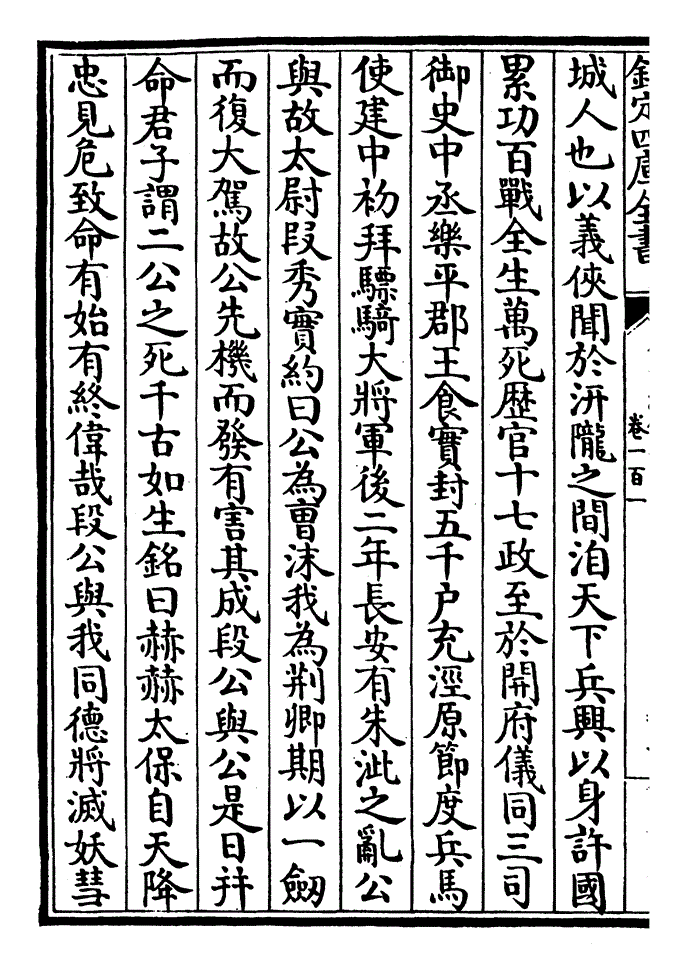 欽定四庫全書
卷一百一
城人也以義俠聞於汧隴之間洎天下兵興以身許國
累功百戰全生萬死歴官十七政至於開府儀同三司
御史中丞樂平郡王食實封五千户充涇原節度兵馬
使建中初拜驃騎大將軍後二年長安有朱泚之亂公
與故太尉段秀實約曰公為曹沫我為荆卿期以一劔
而復大駕故公先機而發有害其成段公與公是日并
命君子謂二公之死千古如生銘曰赫赫太保自天降
忠見危致命有始有終偉哉段公與我同德將滅妖彗